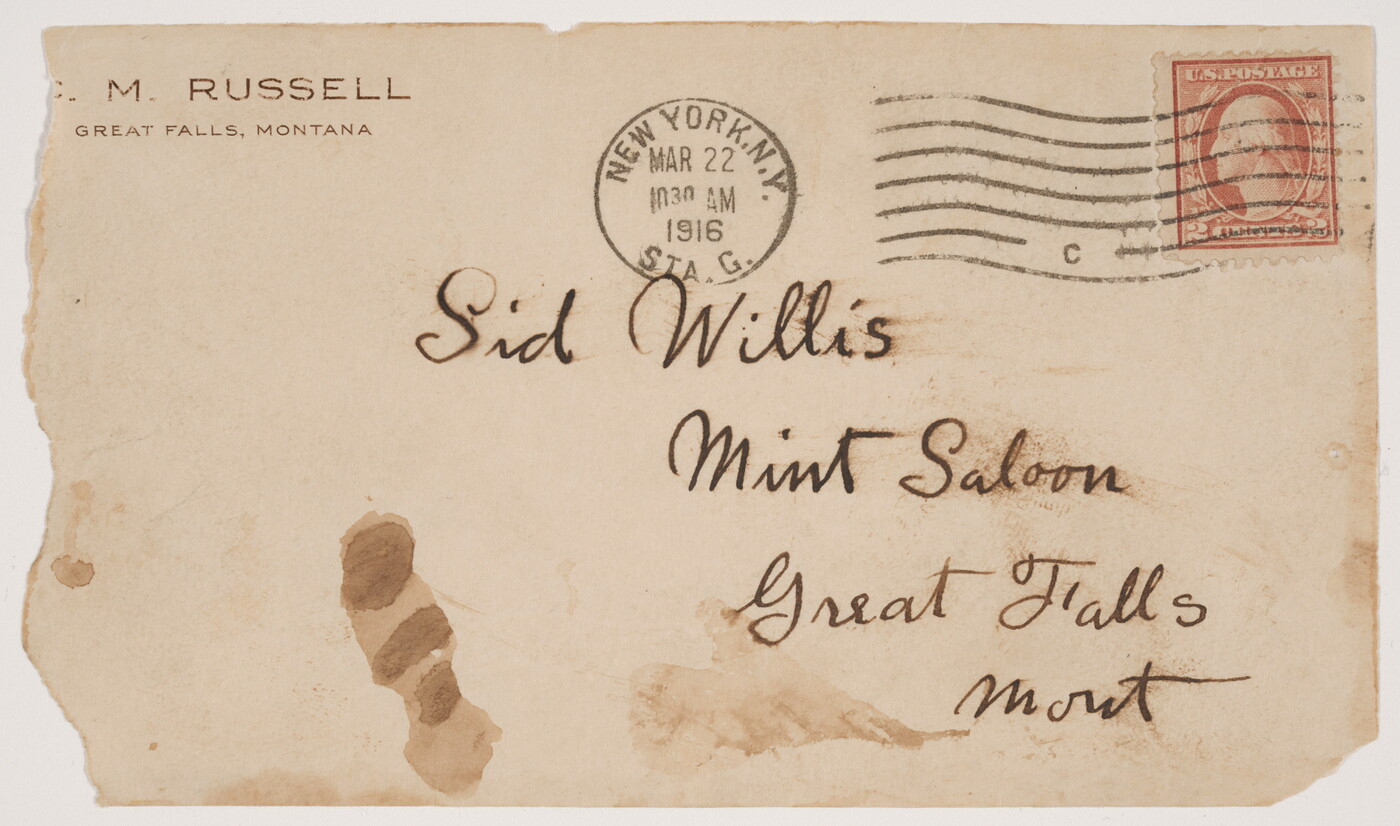 C. M. RUSSELL
GREAT FALLS, MONTANA
NEW YORK, N.Y.
MAR 22
1030 AM
1916
STA. G.
C
U.S. POSTAGE
2 CENTS 2
Sid Willis
Mint Saloon
Great Falls
Mont